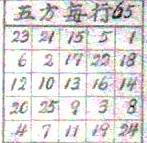 五方每行65
23 21 15 5 1
6 2 17 22 18
12 10 13 16 14
20 25 9 3 8
4 7 11 19 24